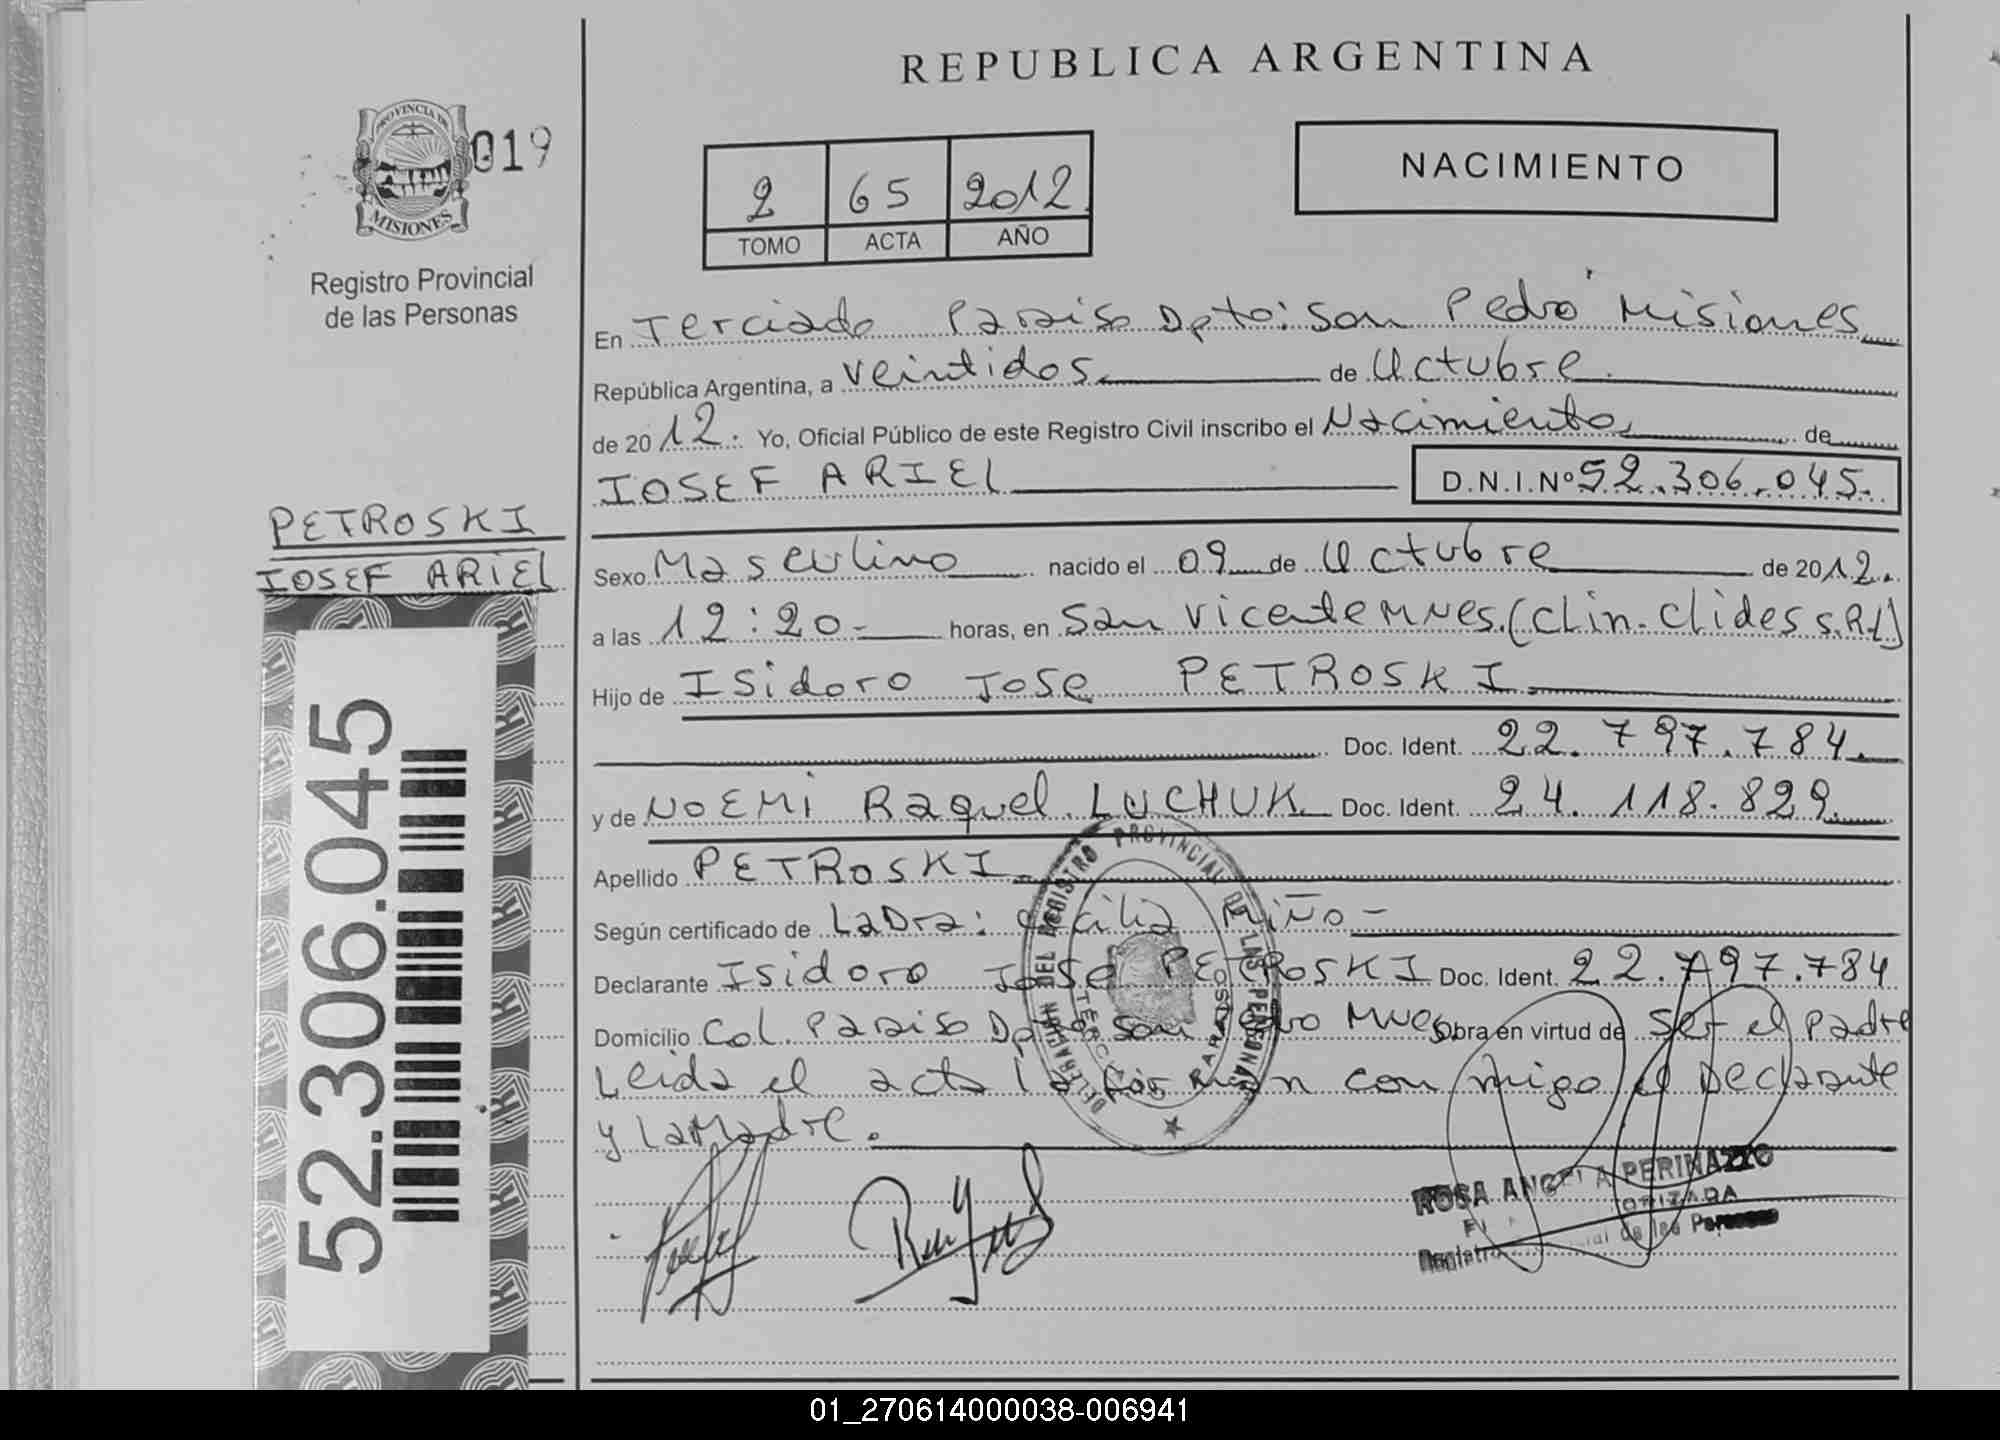 REPUBLICA ARGENTINA
PROVINCIA DE
MISIONES
019
Registro Provincial
de las Personas
NACIMIENTO
2 65 2012
TOMO ACTA AÑO
En Terciado Paraiso Dpto: San Pedro Misiones
República Argentina, a veintidos de Octubre
de 2012. Yo, Oficial Público de este Registro Civil inscribo el Nacimiento de
IOSEF ARIEL D.N.I.Nº 52.306.045.
PETROSKI
IOSEF ARIEL
Sexo Masculino nacido el 09 de Octubre de 2012.
a las 12:20- horas, en San Vicente MNES. (Clin. Clides S.R.L)
Hijo de Isidoro Jose PETROSKI
Doc. Ident. 22.797.784.
y de NOEMI Raquel LUCHUK Doc. Ident. 24.118.829.
Apellido PETROSKI
Según certificado de La Dra: Cecilia Miño-
Declarante Isidoro Jose PETROSKI Doc. Ident. 22.797.784
Domicilio Col. Paraiso Dpto San Pedro Mnes Obra en virtud de ser el padre
Leida el acta la firman con migo el Declarante
y la Madre.
52.306.045
DELEGACION DEL REGISTRO PROVINCIAL DE LAS PERSONAS
TERCIADO PARAISO
ROSA ANGELA PERINAZZO
de las Personas
01_270614000038-006941